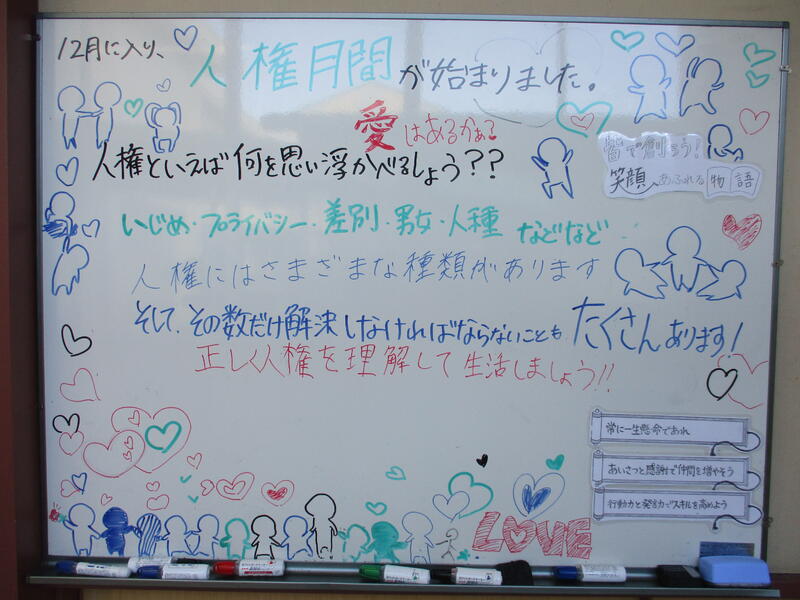 12月に入り、
人権月間が始まりました。
愛はあるかぁ?
人権といえば何を思い浮かべるしょう??
皆で創ろう!
笑顔あふれる物語
いじめ・プライバシー・差別・男女・人種 などなど…
人権にはさまざまな種類があります
そして、その数だけ解決しなければならないことも たくさんあります!
正しく人権を理解して生活しましょう!!
常に一生懸命であれ
あいさつと感謝で仲間を増やそう
行動力と発言力でスキルを高めよう
LOVE